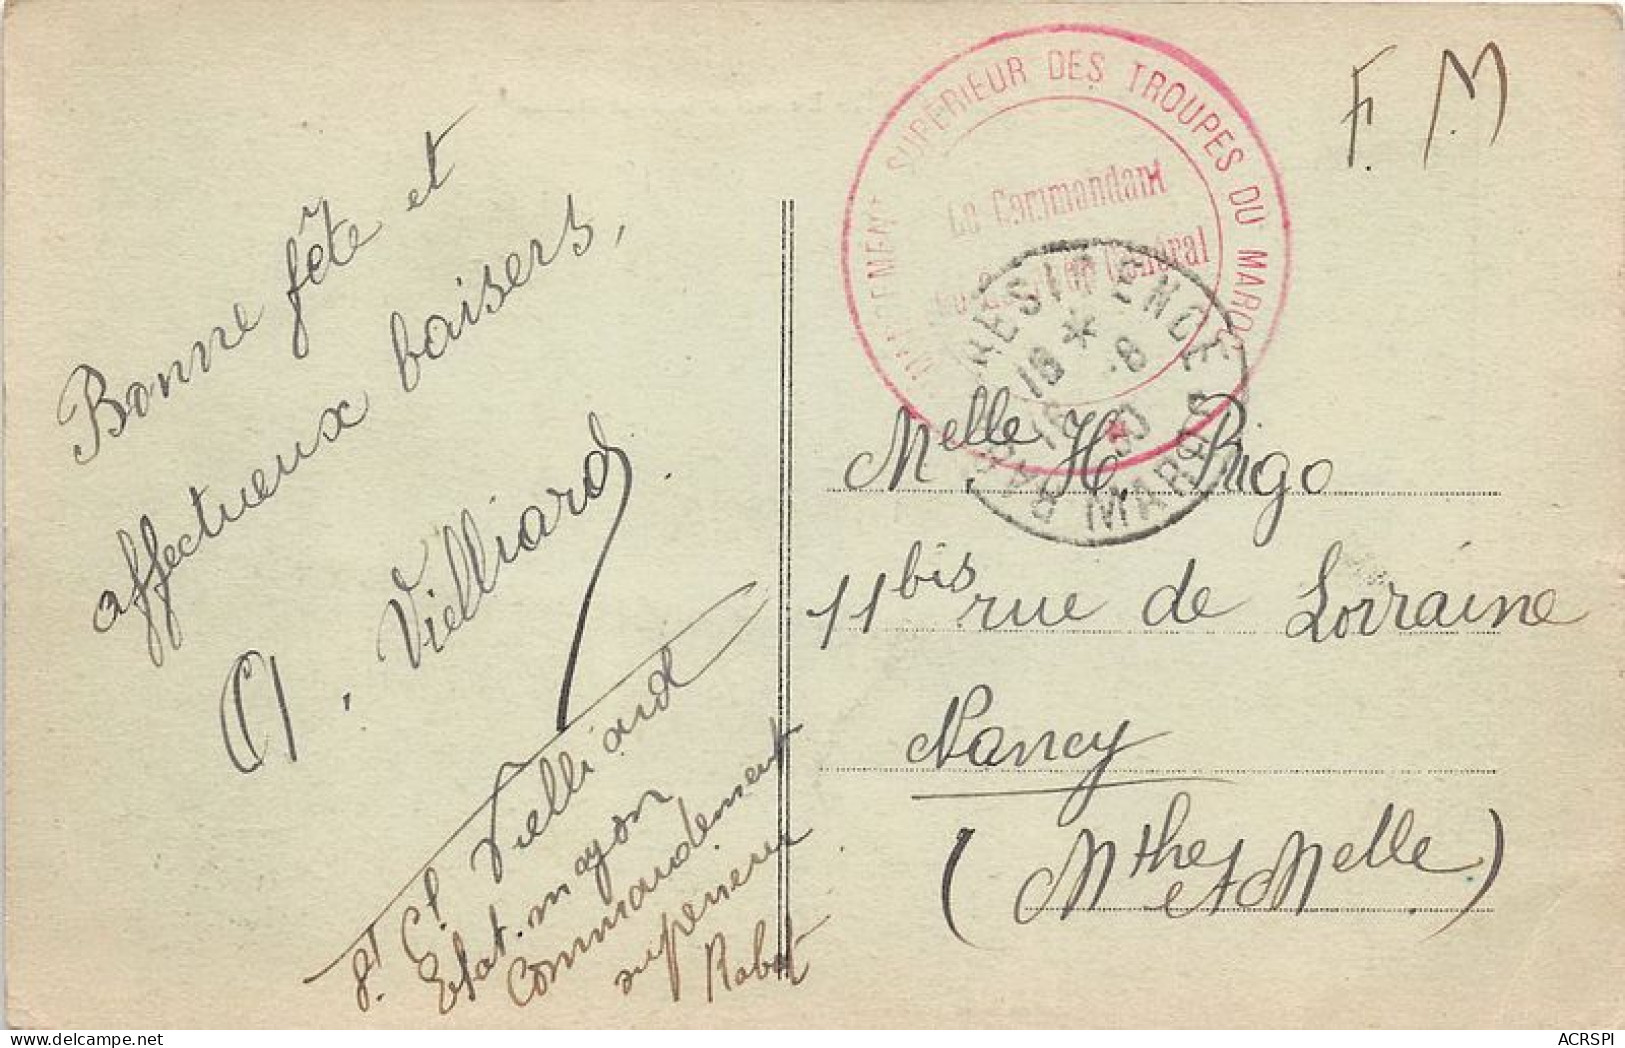 Bonne fête et
affectueux baisers,
A. Vielliard.
Vielliard
Etat-mayor
Commandement
superieur
Rabat
F. M
COMMANDEMENT SUPÉRIEUR DES TROUPES DU MAROC
Le Commandant
Général
RESIDENCE
18 * -8
RABAT MAROC
Melle H. Rigo
11 bis rue de Lorraine
Nancy
(Mthe et Melle)
ACRSPI